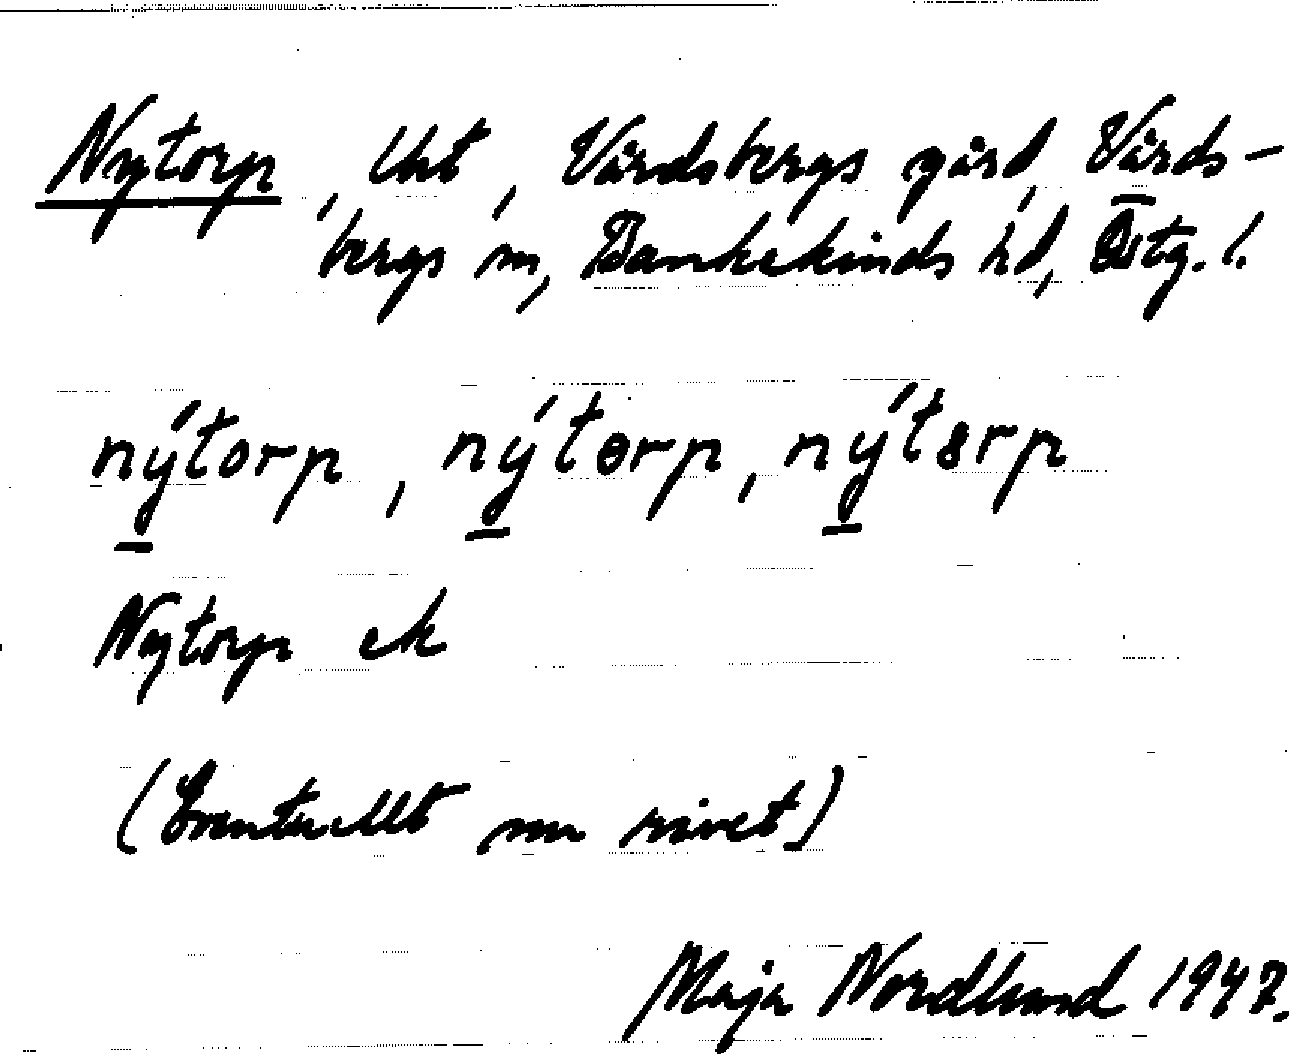 Nytorp, lht, Vårdsbergs gård, Vårds-
bergs sn, Bankekinds hd, Östg. l.
nýtorp, nýtɵrp, nýtɛrp
Nytorp ek
(Eventuellt nu rivet)
Maja Nordlund 1947.